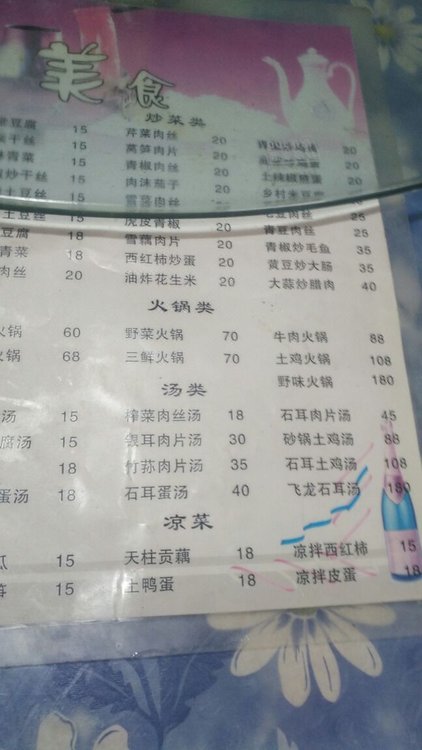 美食
炒菜类
豆腐 15 芹菜肉丝 20
干丝 15 莴笋肉片 20 20
青菜 15 青椒肉丝 20 20
炒干丝 15 肉沫茄子 20 土辣椒煎蛋 20
土豆丝 雪菜肉丝 乡村米豆腐
土豆丝 虎皮青椒 20 毛豆肉丝 25
豆腐 18 雪藕肉片 20 青豆肉丝 25
青菜 18 西红柿炒蛋 20 青椒炒毛鱼 35
肉丝 20 油炸花生米 20 黄豆炒大肠 35
大蒜炒腊肉 40
火锅类
火锅 60 野菜火锅 70 牛肉火锅 88
火锅 68 三鲜火锅 70 土鸡火锅 108
野味火锅 180
汤类
汤 15 榨菜肉丝汤 18 石耳肉片汤 45
腐汤 15 银耳肉片汤 30 砂锅土鸡汤 88
18 竹荪肉片汤 35 石耳土鸡汤 108
蛋汤 18 石耳蛋汤 40 飞龙石耳汤 180
凉菜
瓜 15 天柱贡藕 18 凉拌西红柿 15
笋 15 土鸭蛋 18 凉拌皮蛋 18